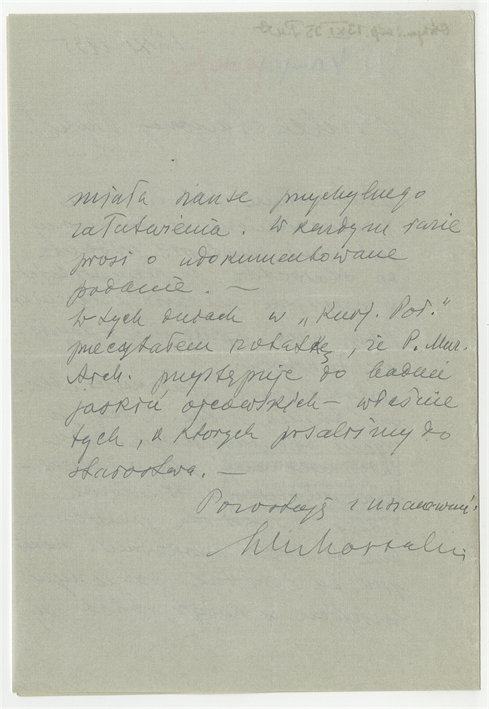 miała szanse przychylnego
załatwienia. W każdym razie
prosi o udokumentowane
podanie. —
W tych dniach w „Kurj. Por."
przeczytałem notatkę, że P. Muz.
Arch. przystępuje do badań
jaskiń ojcowskich — właśnie
tych, o których pisaliśmy do
starostwa. —
Pozostaję z uszanowan.